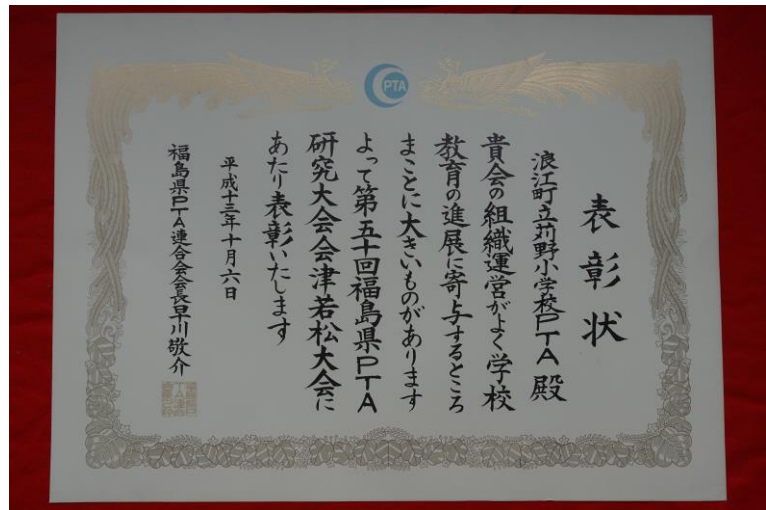 PTA
表彰状
浪江町立苅野小学校PTA 殿
貴会の組織運営がよく学校
教育の進展に寄与するところ
まことに大きいものがあります
よって第五十回福島県PTA
研究大会会津若松大会に
あたり表彰いたします
平成十三年十月六日
福島県PTA連合会会長早川敬介